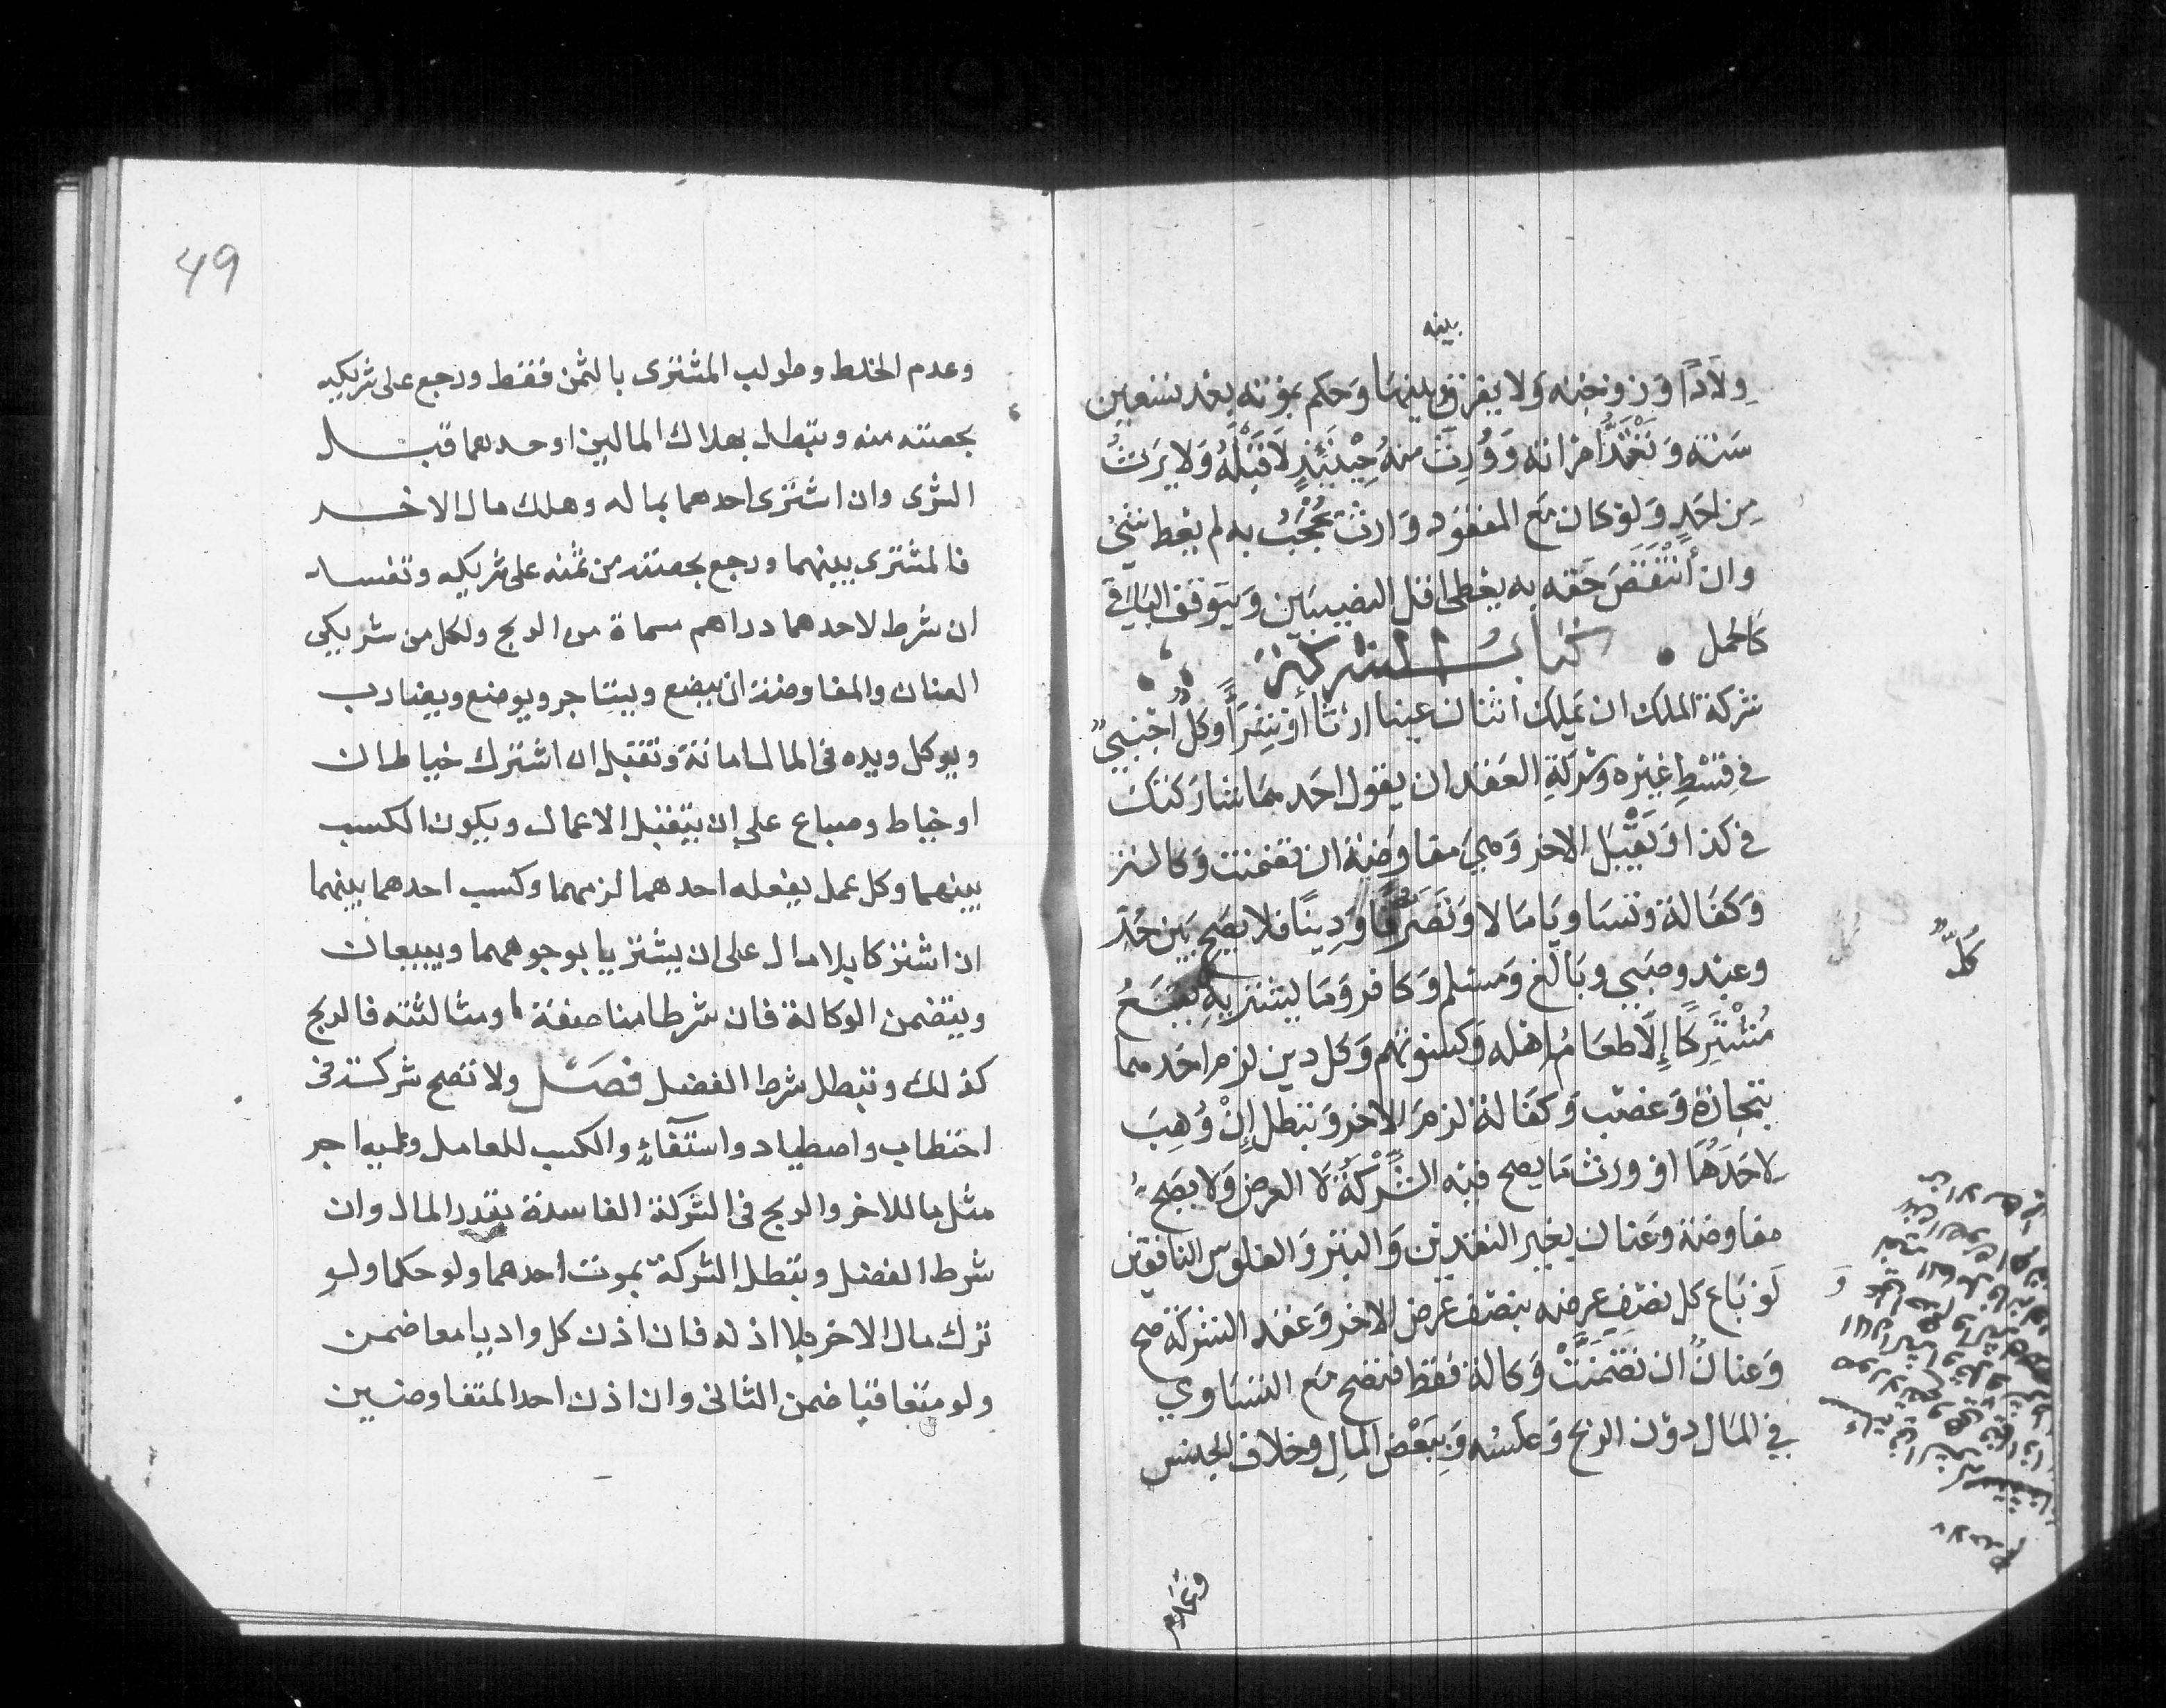 بينه
وِلَادًا وَزوجته وَلا يفرق بينهمَا وَحكم بموته بعْد تسعين
سَنة وَتَعْتَدُّ امرَاته وَوُرِثَ مِنهُ حِيْنَئِذٍ لَا قَبْلَهُ وَلا يَرِثُ
مِن احَدٍ وَلوْ كان مَع المفقود وَارث يُحْجَبُ به لم يعْط شيْئ
وان أنْتَقَصَ حَقه به يعْطى اقل النصيبَين وَيتوقف البَاقي
كَالحمل • كتابُ الشركة
شركة الملك ان يَملك اثنان عينا ارثا أوْ شِرَاً وكلٌّ اجْنبيٌّ
في قسْطِ غيْره وَشركة العَقد ان يقول احَدهمَا شَارَكتكَ
في كذا وَيَقْبَل الاخر وَهيَ مفاوَضة ان تضمنت وَكالة
وَكفَالة وتسَاويَا مَالا وَتَصَرُّفًا وَدِينًا فلا يصح بَين حُرّ
وعبْد وصَبي وبَالغ وَمسْلم وَكافر وَمَا يشتريهِ يقَعُ
مُشْتَرِكًا إِلَّا طعَامُ اهْله وَكسْوتهم وَكل دين لزم احَدهما
بتجارة وَغصْب وَكفَالة لزمَ الاخر وَتبطل إِنْ وُهِبَ
لِاحَدهُمَا اوْ ورث مَا يصح فيْه الشِّرْكَةُ لا العرض وَلا يصَح
مفاوضة وَعنان بغير النقدين وَالتبْر وَالفلوس النافقين
لَوْ بَاع كل نصْفِ عرضه بنصْف عرض الاخر وَعقد الشركة صح
وَعنانٌ ان تضَمَّنَتْ وَكالة فقط فتصح مَع التسَاوي
في المَال دوْن الربح وَعكسْه وَبِبَعْض المالِ وخلاف الجنس
وعَدم
كُلٌّ
وعدم الخلط وطولب المشترى بالثمن فقط ورجع على شريكه
بحصته منه وتبطل بهلاك المالين او حدهما قبل
الشرى وان اشترى احدهما بماله وهلك مال الاخر
فالمشترى بينهما ورجع بحصته من ثمنه على شريكه وتفسد
ان شرط لاحدهما دراهم مسماة من الربح ولكل من شريكي
العنان والمفاوضة ان يبضع ويستاجر ويوضع ويضارب
ويوكل ويده فى المال امانة وتقبل ان اشترك خياطان
او خياط وصباع على ان يتقبل الاعمال ويكون الكسب
بينهما وكل عمل يفعله احدهما لزمهما وكسب احدهما بينهما
ان اشتركا بلا مال على ان يشتريا بوجوههما ويبيعان
ويتضمن الوكالة فان شرطا مناصفة او مثالثته فالربح
كذلك وتبطل شرط الفضل فصل ولا تصح شركة فى
احتطاب واصطياد واستقاءٍ والكسب للعامل وعليه اجر
مثل ما للاخر والربح فى الشركة الفاسدة بقدر المال وان
شرط الفضل وتبطل الشركة بموت احدهما ولو حكما ولم
تزك مال الاخر بلا اذنه فان اذن كل واديا معا ضمن
ولو متعاقبا ضمن الثانى وان اذن احد المتفاوضين
49